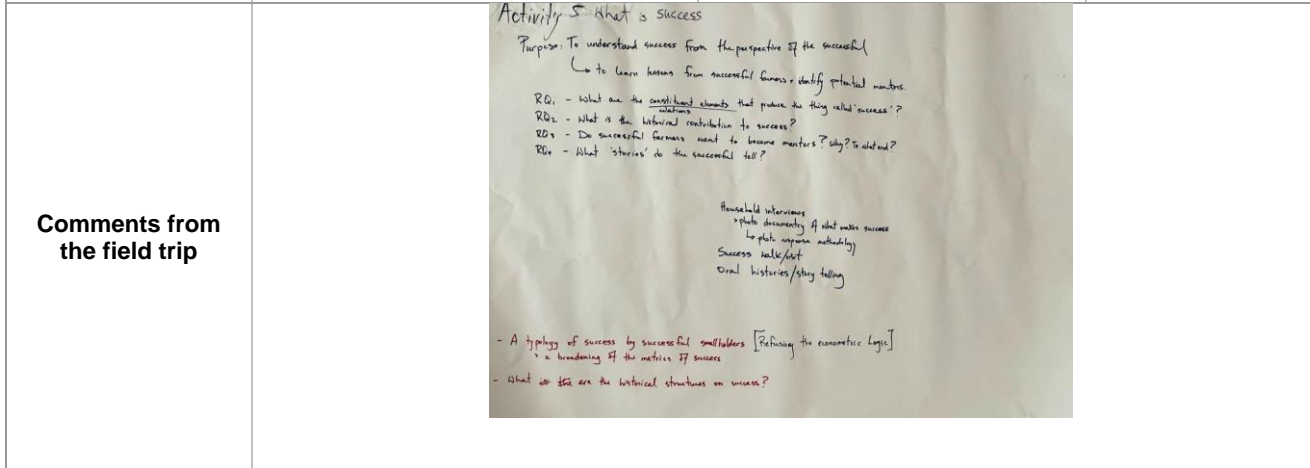 Comments from
the field trip
Activity 5 What is success
Purpose: To understand success from the perspective of the successful
to learn lessons from successful farmers + identify potential mentors.
RQ1 - What are the constituent elements that produce the thing called 'success'?
relations
RQ2 - What is the historical contribution to success?
RQ3 - Do successful farmers want to become mentors? Why? To what end?
RQ4 - What 'stories' do the successful tell?
Household interviews
photo documentry of what makes success
photo response methodology
Success walk/visit
Oral histories/story telling
- A typology of success by successful smallholders [Refusing the econometric Logic]
a broadening of the metrics of success
- What are the historical structures on success?